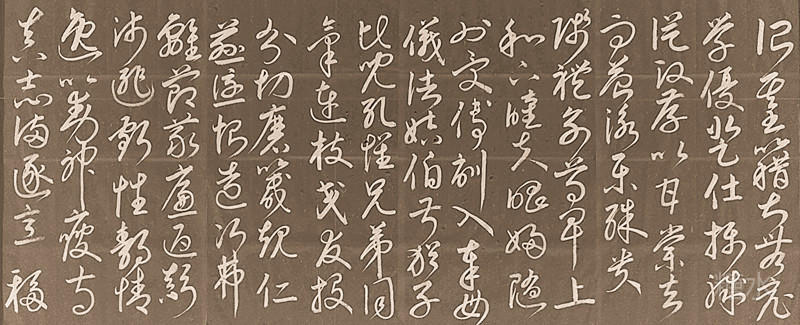 所基籍甚無竟
學優登仕攝職
從政存以甘棠去
而益詠樂殊貴
賤禮別尊卑上
和下睦夫唱婦隨
外受傅訓入奉母
儀諸姑伯叔猶子
比兒孔懷兄弟同
氣連枝交友投
分切磨箴規仁
慈隱惻造次弗
離節義廉退顛
沛匪虧性靜情
逸心動神疲守
真志滿逐意移